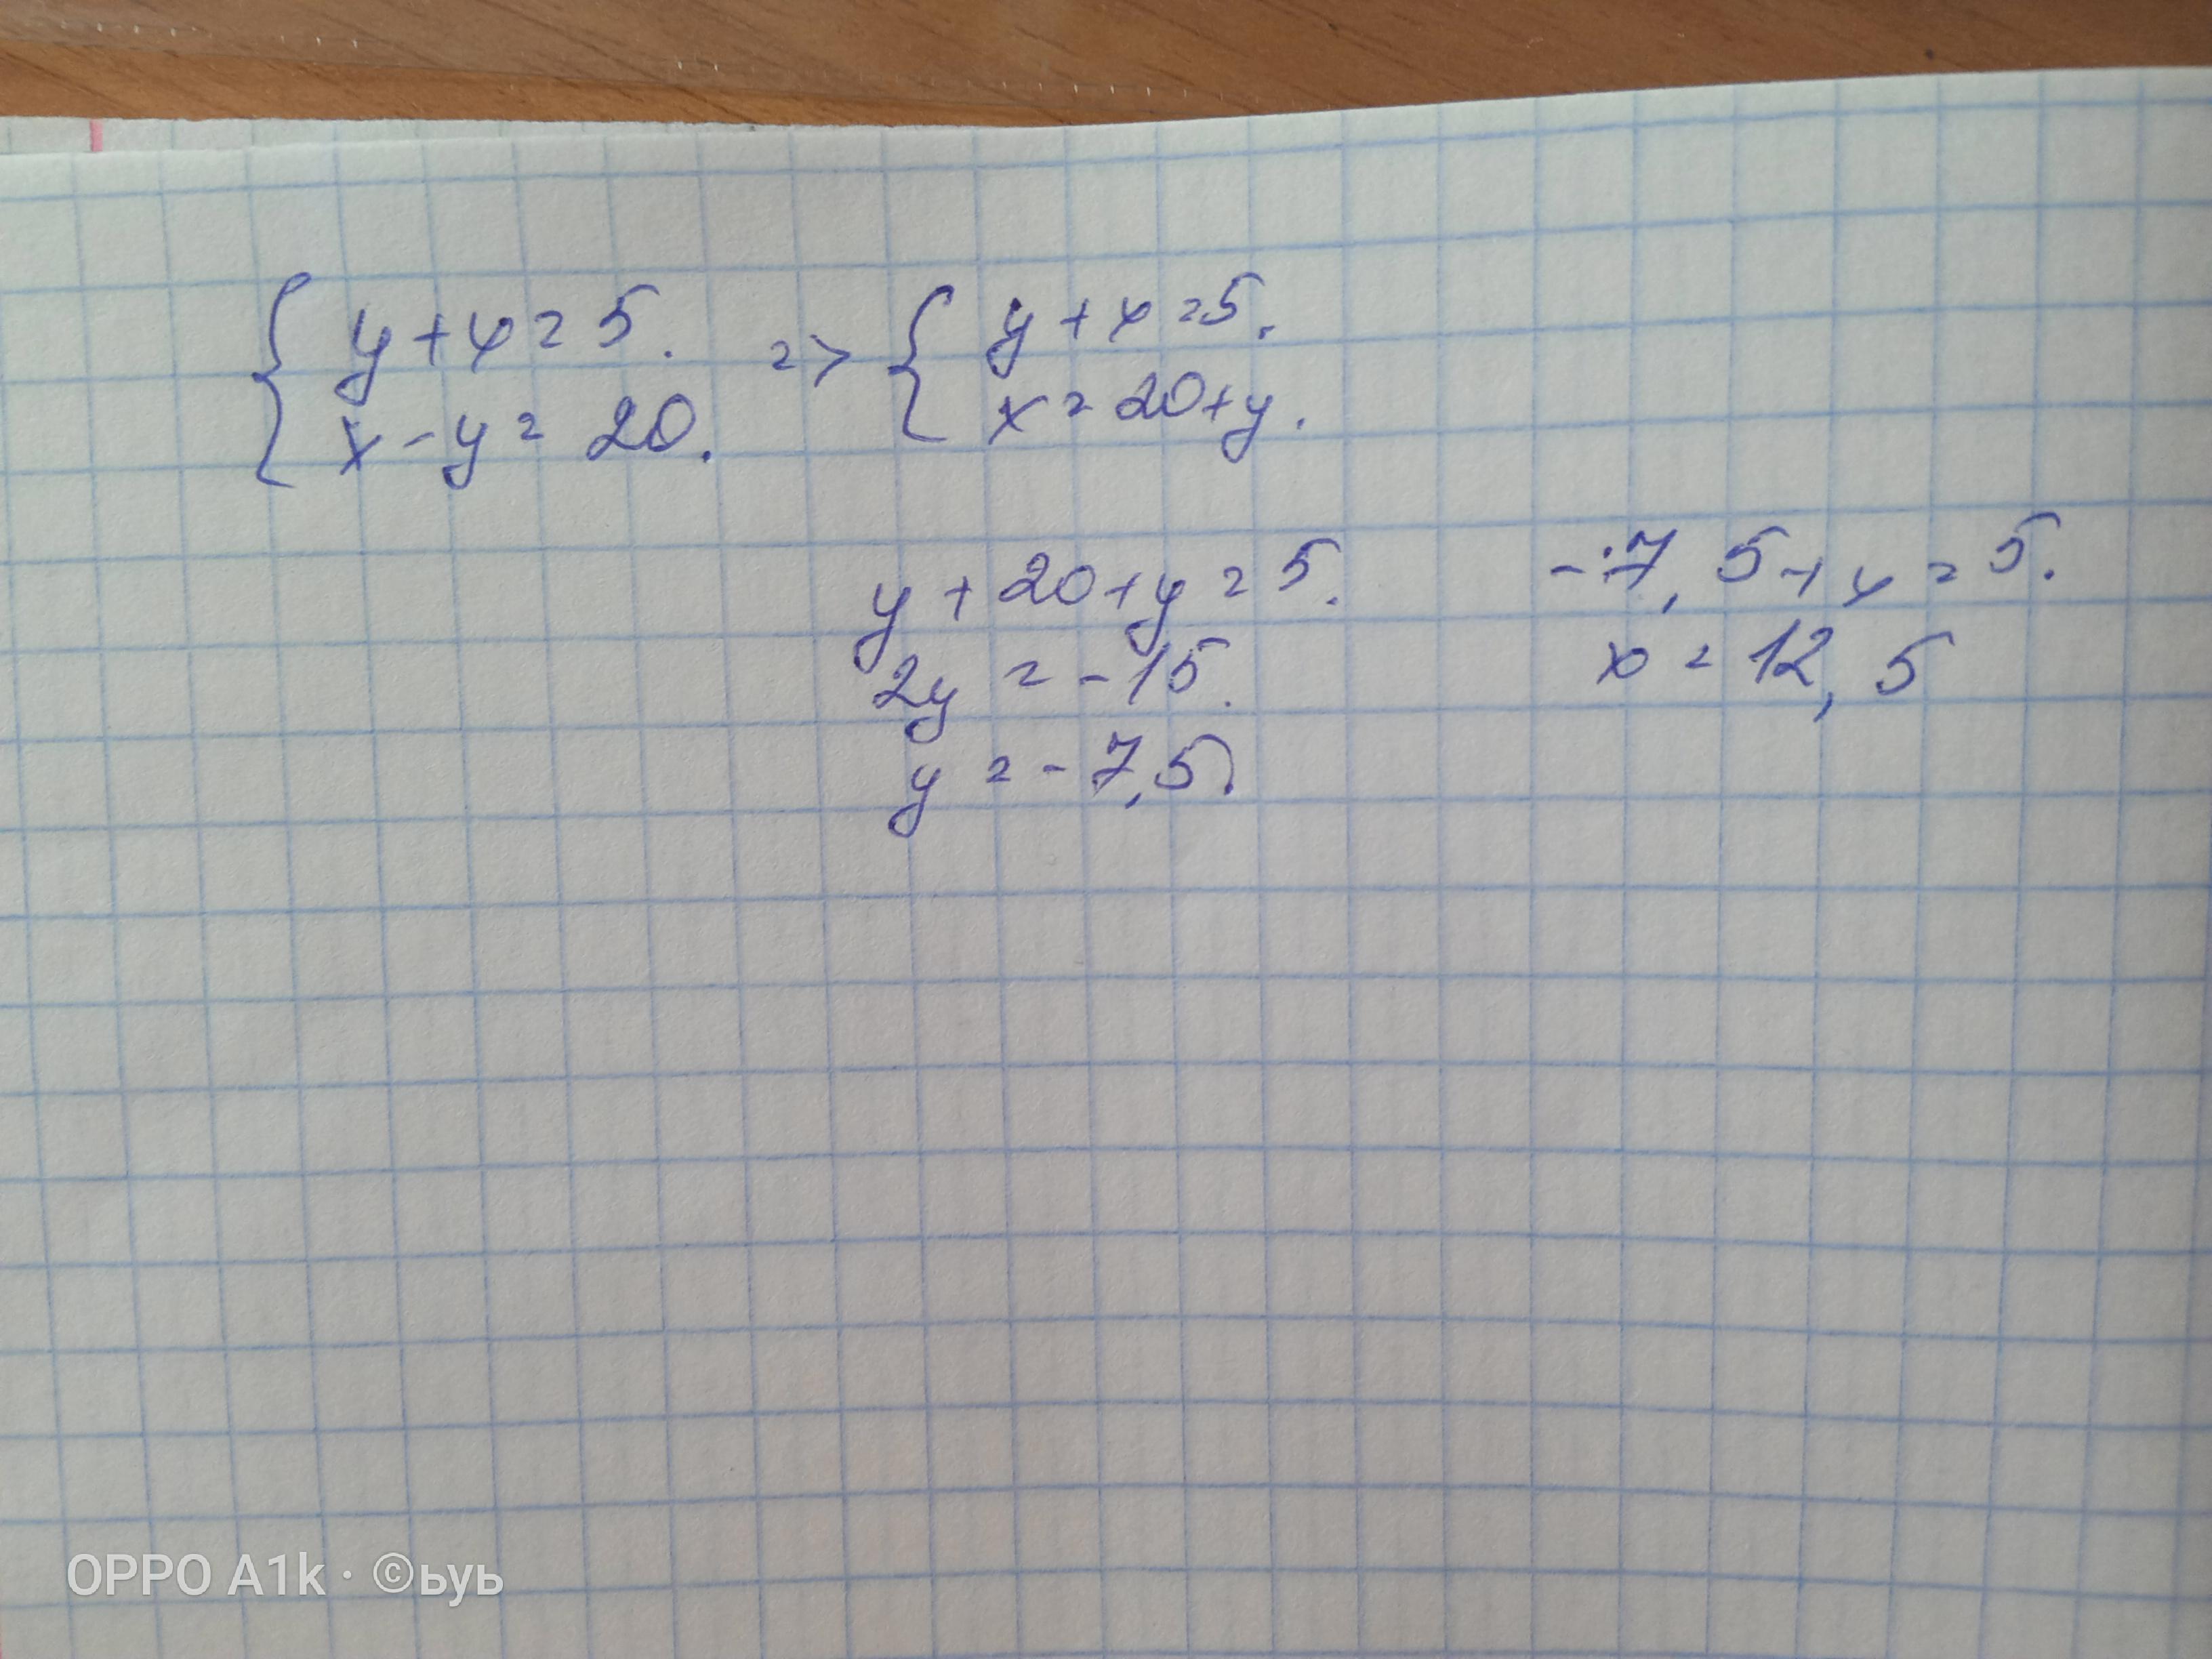 { y + x = 5. => { y + x = 5.
x - y = 20. x = 20 + y.
y + 20 + y = 5.
2y = -15.
y = -7,5.
-7,5 + x = 5.
x = 12,5
OPPO A1k · ©ьуь